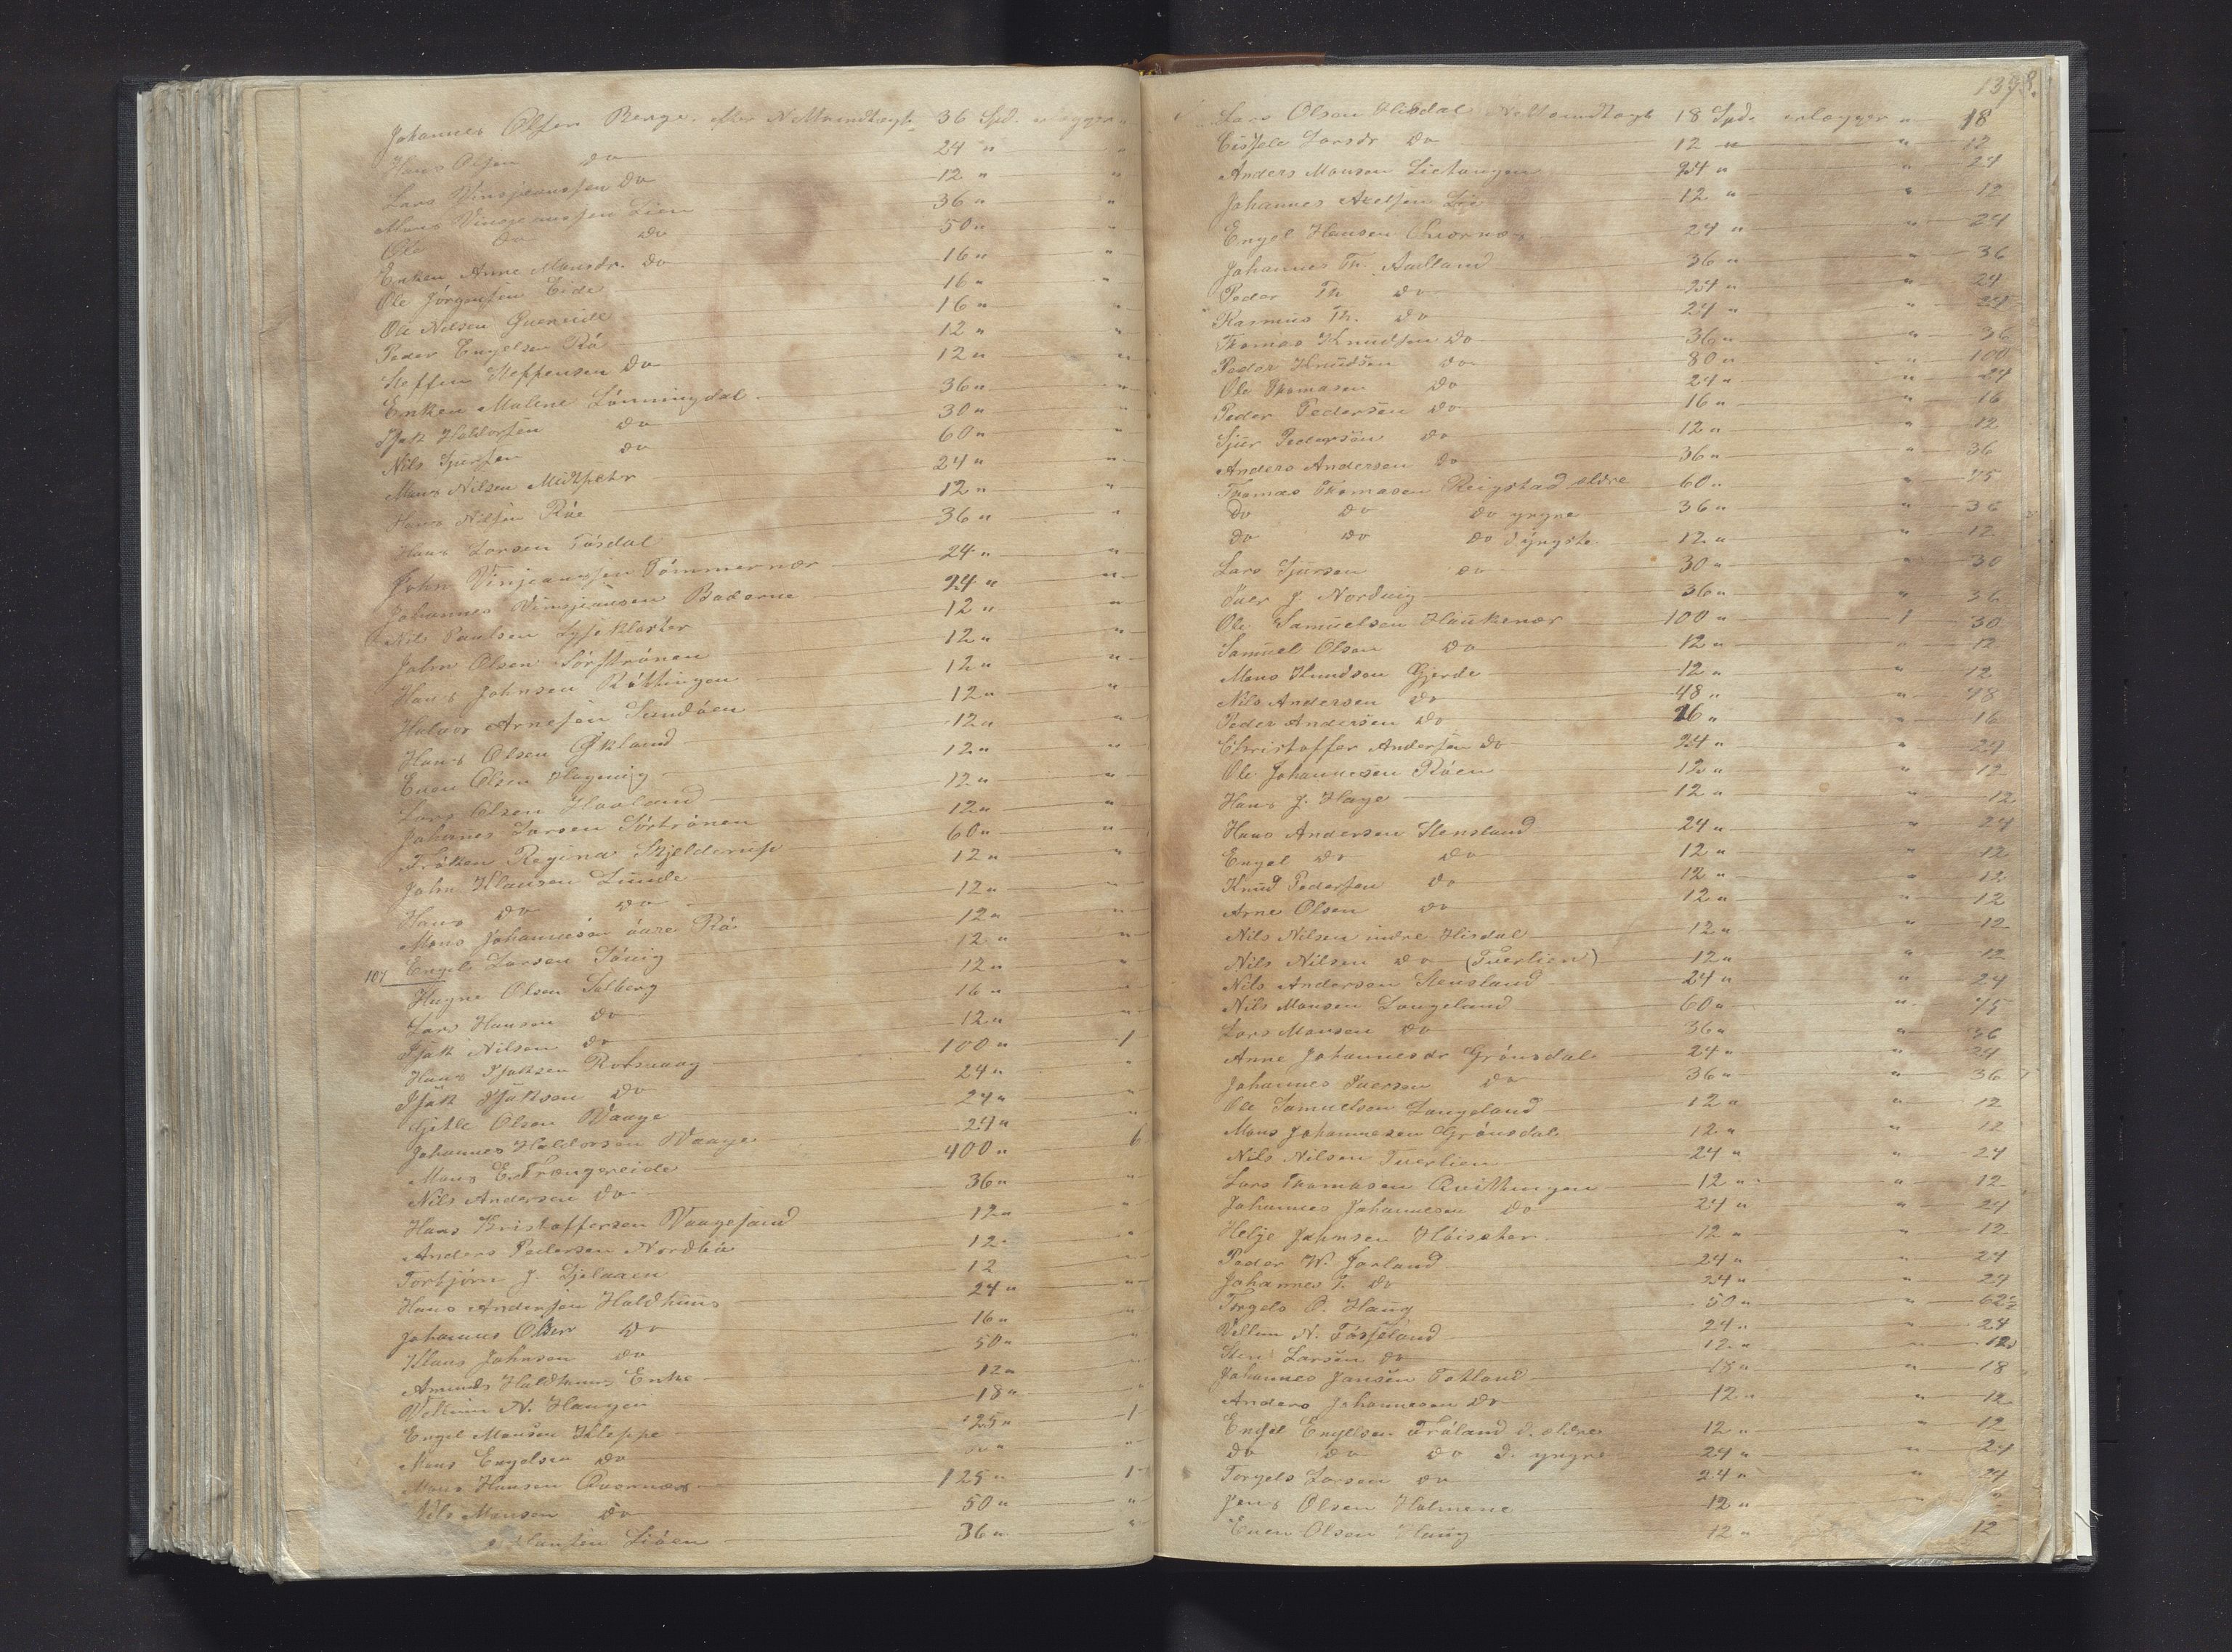 Johannes Olsen Berge efter N Mundtægt 36 Spd. erlægger "
Hans Olsen do 24 " "
Lars Vinsjeansen do 12 " "
Vinsjeansen Lien 36 " "
Ole do do 50 " "
Enken Anne Monsdr. do 16 " "
Ole Jörgensen Eide 16 " "
Ole Nilsen Guereide 16 " "
Peder Engelsen Rö 12 " "
Steffen Steffensen do 12 " "
Enken Malene Lönningdal 36 " "
Isak Haldorsen do 30 " "
Nils Sjursen do 60 " "
Mons Nilsen Midtsæter 24 " "
Hans Nilsen Röe 12 " "
Hans Larsen Tösdal 36 " "
John Vinjeansen Tömmernæs 24 " "
Johannes Vinsjeansen Baderne 24 " "
Nils Paulsen Lysekloster 12 " "
John Olsen Sörströnen 12 " "
Hans Johnsen Röttingen 12 " "
Halvor Arnesen Sundöen 12 " "
Hans Olsen Økland 12 " "
Even Olsen Hagevig 12 " "
Lars Olsen Haaland 12 " "
Johannes Larsen Sörtrönen 12 " "
Fröken Regina Skjelderup 60 " "
John Klausen Lunde 12 " "
Hans do do 12 " "
Mons Johannesen övre Rö 12 " "
107 Engel Larsen Sövig 12 " "
Hagne Olsen Solberg 12 " "
Lars Hansen do 16 " "
Isak Nilsen do 12 " "
Hans Isaksen Rotsvaag 100 " 1
Isak Isaksen do 24 " "
Gitle Olsen Waage 24 " "
Johannes Haldorsen Waage 24 " "
Mons E. Trængereide 400 " 6
Nils Andersen do 36 " "
Hans Kristoffersen Waagesund 12 " "
Anders Pedersen Nordbö 12 " "
Torbjörn J. Gjelaaen 12 "
Hans Andersen Haldhuus 24 " "
Johannes Olsen do 16 " "
Klaus Johnsen do 50 " "
Amunds Haldhuus Enke 12 " "
Vellum N. Haugen 18 " "
Engel Monsen Kleppe 125 " 1
Mons Engelsen do " "
Mons Hansen Qvernæs 125 " 1
Nils Monsen do 50 " "
Hansen Liöen 36 " "
1398.
Lars Olsen Hisdal N Mundtægt 18 Spd. erlægger " 18
Larsdr do 12 " " 12
Anders Monsen Lietangen 24 " " 24
Johannes Axelsen Lie 12 " " 12
Engel Hansen Qvernæs 24 " " 24
Johannes Th. Aadland 36 " " 36
Peder Th do 24 " " 24
Rasmus Th. do 24 " " 24
Thomas Knudsen do 36 " " 36
Peder Knudsen do 80 " " 100
Ole Thomasen do 24 " " 24
Peder Pedersen do 16 " " 16
Sjur Pedersen do 12 " " 12
Anders Andersen do 36 " " 36
Thomas Thomasen Reigstad ældre 60 " " 75
do do do yngre 36 " " 36
do do do d. yngste 12 " " 12
Lars Sjursen do 30 " " 30
Iver J. Nordvig 36 " " 36
Ole Samuelsen Haukenæs 100 " 1 30
Samuel Olsen do 12 " " 12
Mons Knudsen Gjerde 12 " " 12
Nils Andersen do 48 " " 48
Peder Andersen do 16 " " 16
Christoffer Andersen do 24 " " 24
Ole Johannesen Röen 12 " " 12
Hans J. Hage 12 " " 12
Hans Andersen Stensland 24 " " 24
Engel do do 12 " " 12
Knud Pedersen do 12 " " 12
Arne Olsen do 12 " " 12
Nils Nilsen indre Hisdal 12 " " 12
Nils Nilsen do (Tverlien) 12 " " 12
Nils Andersen Stensland 24 " " 24
Nils Monsen Langeland 60 " " 75
Lars Monsen do 36 " " 36
Anne Johannesdr Grönsdal 24 " " 24
Johannes Iversen do 36 " " 36
Ole Samuelsen Langeland 12 " " 12
Mons Johannesen Grönsdal 12 " " 12
Nils Nilsen Tverlien 24 " " 24
Lars Thomasen Qvittingen 12 " " 12
Johannes Johannesen do 24 " " 24
Helge Johnsen Höisæter 12 " " 12
Peder W. Jarland 24 " " 24
Johannes T. do 24 " " 24
Torgels O. Haug 50 " " 62½
Vellum N. Tösseland 24 " " 24
Sten Larsen do 12 " " 12
Johannes Jansen Tatland 18 " " 18
Anders Johannesen do 12 " " 12
Engel Engelsen Tröland d. ældre 12 " " 12
do do do d. yngre 24 " " 24
Torgels Larsen do 24 " " 24
Jens Olsen Holmene 12 " "
Even Olsen Haug 12 " 12